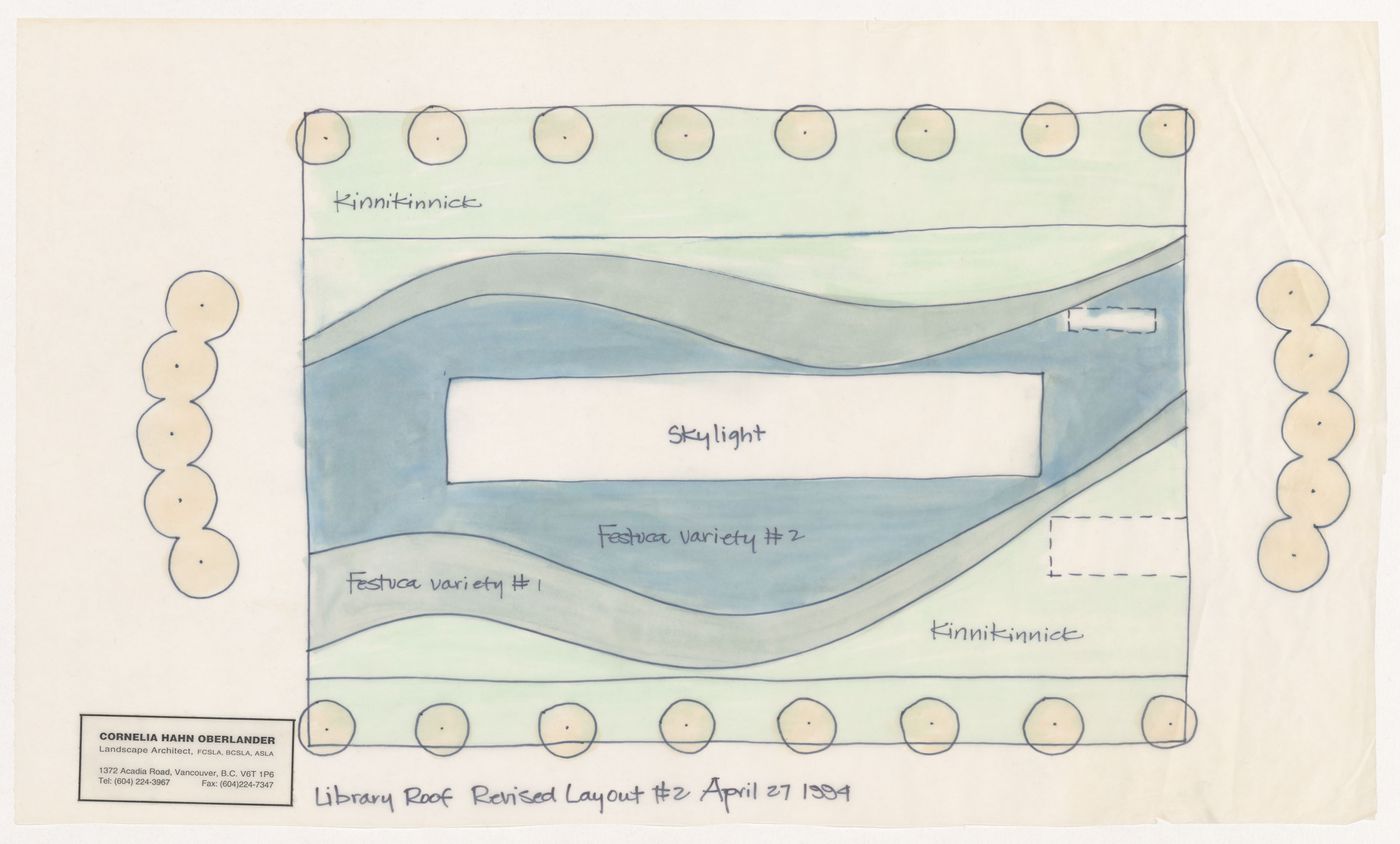 Kinnikinnick
Skylight
Festuca variety #2
Festuca variety #1
Kinnikinnick
CORNELIA HAHN OBERLANDER
Landscape Architect, FCSLA, BCSLA, ASLA
1372 Acadia Road, Vancouver, B.C. V6T 1P6
Tel: (604) 224-3967 Fax: (604)224-7347
Library Roof Revised Layout #2 April 27 1994